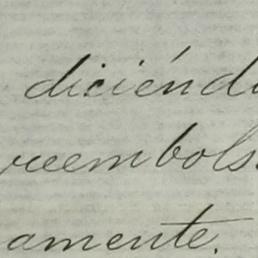 diciénd
reembols
amente.